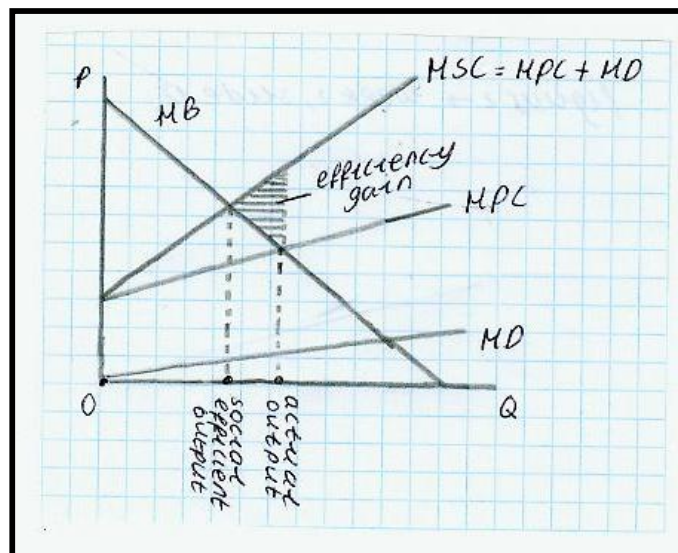 P
MSC = MPC + MD
MB
efficiency
gain
MPC
MD
O
Q
social
efficient
output
actual
output